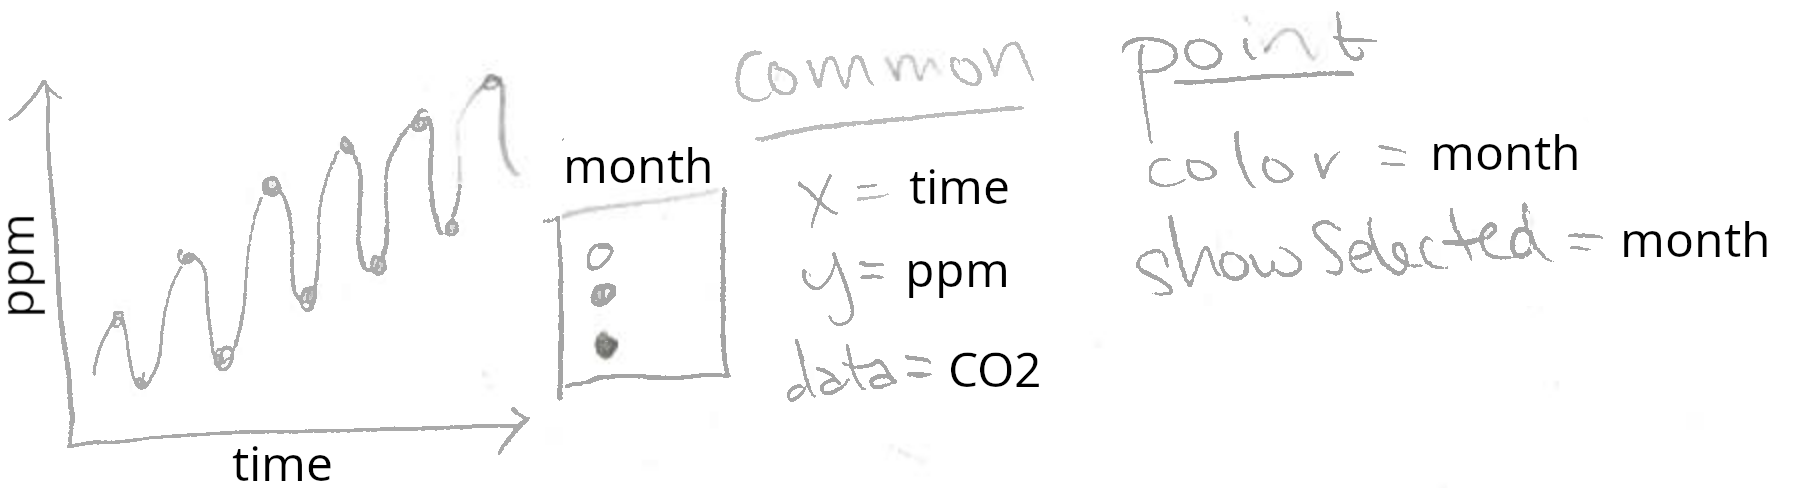 ppm
time
month
common
x = time
y = ppm
data = CO2
point
color = month
showSelected = month